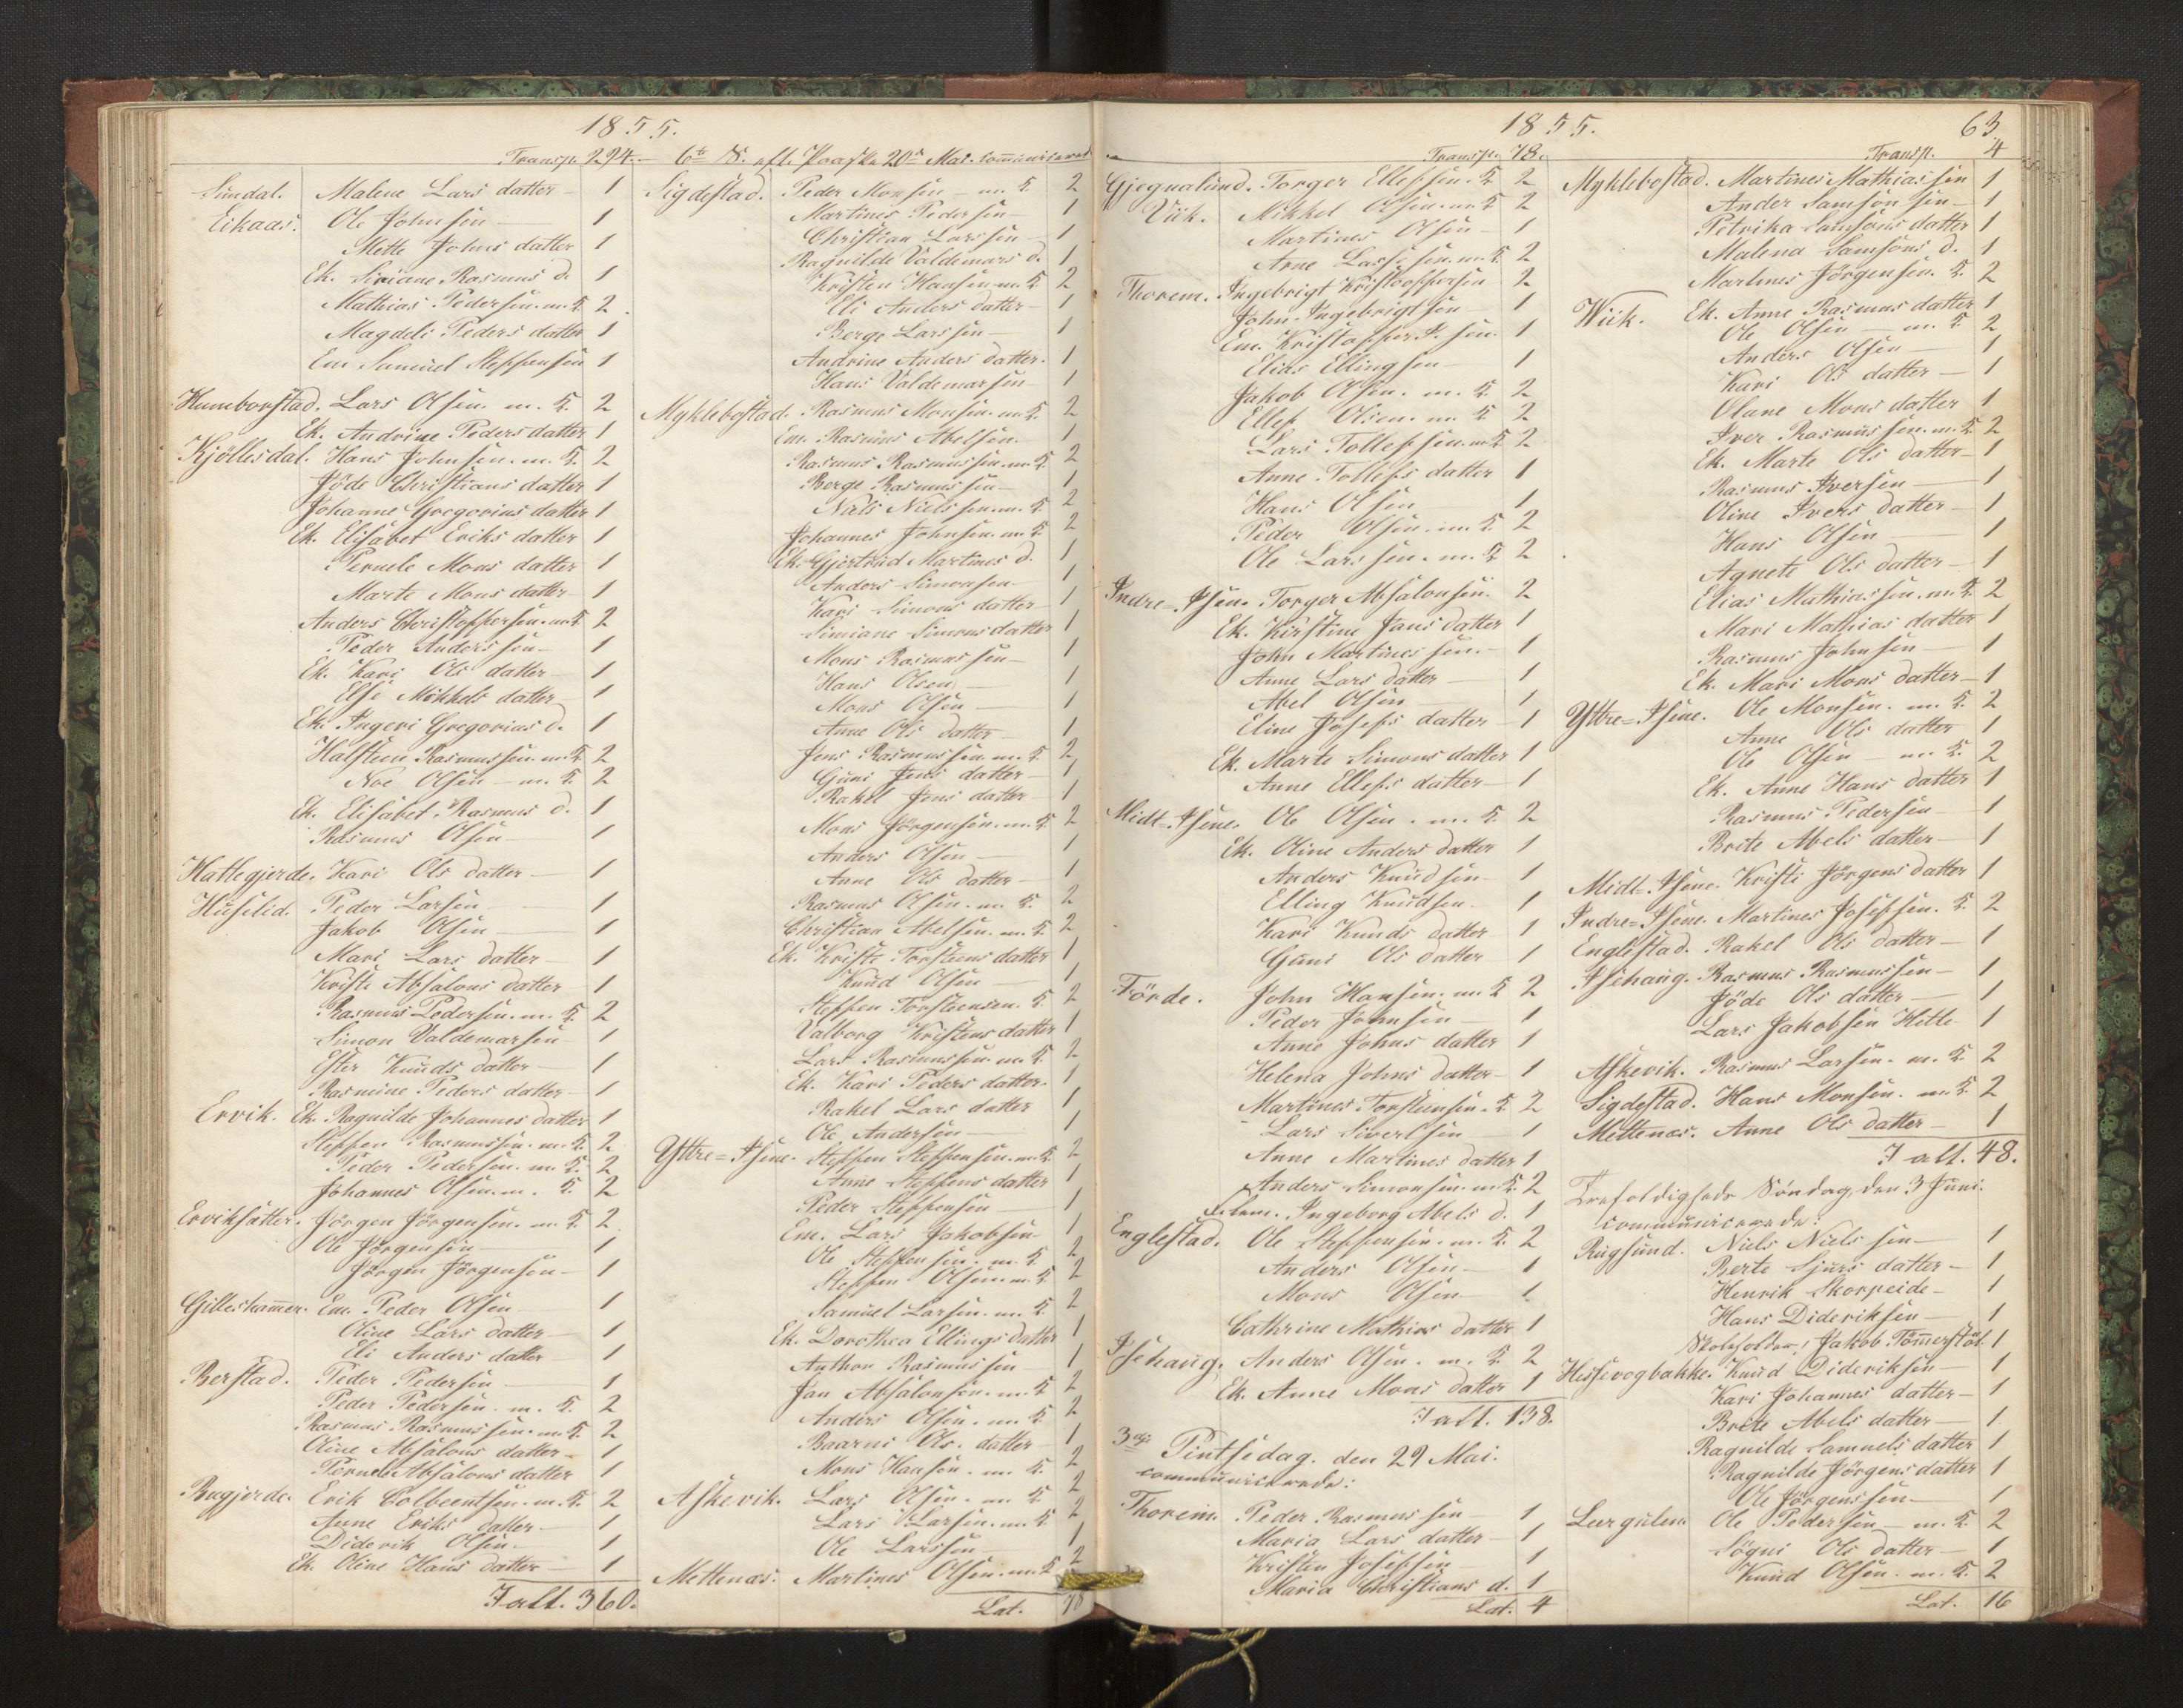 1855.
Transp. 294.
Sundal. Malene Lars datter 1
Eikaas. Ole Johnsen 1
Mette Johns datter 1
Ek. Siriane Rasmus d. 1
Mathias Pedersen m. K. 2
Magdeli Peders datter 1
Em Samuel Steffensen 1
Humborstad. Lars Olsen m. K. 2
Ek. Andrine Peders datter 1
Kjöllesdal. Hans Johnsen m. K. 2
Jöde Christians datter 1
Johanne Gregorius datter 1
Ek. Elisabet Eriks datter 1
Pernele Mons datter 1
Marte Mons datter 1
Anders Christoffersen m. K. 2
Peder Anderssen 1
Ek. Kari Ols datter 1
Else Mikkels datter 1
Ek. Ingeri Gregorius d. 1
Halsteen Rasmussen m. K. 2
Noe Olsen m. K. 2
Ek. Elisabet Rasmus d. 1
Rasmus Olsen 1
Hattegjerde. Kari Ols datter 1
Huselid. Peder Larsen 1
Jakob Olsen 1
Mari Lars datter 1
Kristi Absalons datter 1
Rasmus Pedersen m. K. 2
Simon Valdemarsen 1
Ester Knuds datter 1
Rasmine Peders datter 1
Ervik. Ek. Ragnilde Johannes datter 1
Steffen Rasmussen m. K. 2
Peder Pedersen m. K. 2
Johannes Olsen m. K. 2
Erviksätter. Jörgen Jörgensen m. K. 2
Ole Jörgensen 1
Jörgen Jörgensen 1
Gilleshammer. Em. Peder Olsen 1
Oline Lars datter 1
Eli Anders datter 1
Berstad. Peder Pedersen 1
Peder Pedersen m. K. 2
Rasmus Rasmussen m. K. 2
Oline Absalons datter 1
Pernel Absalons datter 1
Bugjerde. Erik Colbeentsen m. K. 2
Anne Eriks datter 1
Diderik Olsen 1
Ek. Oline Hans datter 1
I alt. 360.
6te S. eft. Paaske 20de Mai communicerede
Sigdestad. Peder Monsen m. K. 2
Martines Pedersen 1
Christian Larssen 1
Ragnilde Valdemars d. 1
Kristen Hansen m. K. 2
Eli Anders datter 1
Berge Larssen 1
Andrine Anders datter 1
Hans Valdemarsen 1
Myklebostad. Rasmus Monsen m. K. 2
Em. Rasmus Abelsen 1
Rasmus Rasmussen m. K. 2
Berge Rasmussen 1
Niels Nielssen m. K. 2
Johannes Johnsen m. K. 2
Ek. Gjertrud Martines d. 1
Anders Simonsen 1
Kari Simons datter 1
Simiane Simons datter 1
Mons Rasmussen 1
Hans Olsen 1
Mons Olsen 1
Anne Ols datter 1
Jens Rasmussen m. K. 2
Guni Jens datter 1
Rakel Jens datter 1
Mons Jörgensen m. K. 2
Anders Olsen 1
Anne Ols datter 1
Rasmus Olsen m. K. 2
Christian Abelsen m. K. 2
Ek. Kristi Torsteens datter 1
Knud Olsen 1
Steffen Torsteensen K. 2
Valborg Kristens datter 1
Lars Rasmussen m. K. 2
Ek. Kari Peders datter 1
Rakel Lars datter 1
Ole Andersen 1
Yttre=Isene. Steffen Steffensen m. K. 2
Anne Steffens datter 1
Peder Steffensen 1
Em. Lars Jakobsen 1
Ole Steffensen m. K. 2
Steffen Olsen m. K. 2
Samuel Larsen m. K. 2
Ek. Dorothea Ellings datter 1
Anthon Rasmussen 1
Jan Absalonsen m. K. 2
Anders Olsen m. K. 2
Baarni Ols. datter 1
Mons Hansen m. K. 2
Askevik. Lars Olsen m. K. 2
Lars Larsen m. K. 2
Ole Larssen 1
Mettenæs. Martines Olsen m. K. 2
Lat. 78
1855.
Transp. 78.
Gjegnalund. Torger Ellefsen K. 2
Viik. Mikkel Olsen m. K. 2
Martines Olsen 1
Arne Larssen m. K. 2
Thorem. Ingebrigt Kristoffersen 2
John Ingebrigtsen 1
Em. Kristoffer P. sen 1
Elias Ellingsen 1
Jakob Olsen m. K. 2
Ellef Olsen m. K. 2
Lars Tollefsen m. K. 2
Anne Tollefs datter 1
Hans Olsen 1
Peder Olsen m. K. 2
Ole Larssen m. K. 2
Indre=Isene. Torger Absalonsen 2
Ek. Kirstine Jans datter 1
John Martinessen 1
Anne Lars datter 1
Abel Olsen 1
Eline Josefs datter 1
Ek. Marte Simons datter 1
Anne Ellefs datter 1
Midt=Isene. Ole Olsen m. K. 2
Ek. Oline Anders datter 1
Anders Knudsen 1
Elling Knudsen 1
Kari Knuds datter 1
Guni Ols datter 1
Förde. John Hansen m. K. 2
Peder Johnsen 1
Anne Johns datter 1
Helena Johns datter 1
Martines Torsteensen K. 2
Lars Sivertsen 1
Anne Martines datter 1
Anders Simonsen m. K. 2
Ingeborg Abels d. 1
Englestad. Ole Steffensen m. K. 2
Anders Olsen 1
Mons Olsen 1
Cathrine Mathias datter 1
Isehaug. Anders Olsen m. K. 2
Ek. Anne Mons datter 1
I alt. 138.
3die Pintsedag. den 29 Mai.
communicerede:
Thorem. Peder Rasmussen 1
Maria Lars datter 1
Kristen Josefsen 1
Maria Christians d. 1
Lat. 4
63
Transp. 4
Myklebostad. Martines Mathiassen 1
Ander Samsonsen 1
Petrika Samsons datter 1
Malena Samsons d. 1
Martines Jörgensen K. 2
Wiik. Ek. Anne Rasmus datter 1
Ole Olsen m. K. 2
Anders Olsen 1
Kari Ols datter 1
Olane Mons datter 1
Iver Rasmussen m. K. 2
Ek. Marte Ols datter 1
Rasmus Iversen 1
Oline Ivers datter 1
Hans Olsen 1
Agnete Ols datter 1
Elias Mathiassen m. K. 2
Mari Mathias datter 1
Rasmus Johnsen 1
Ek. Mari Mons datter 1
Yttre=Isene. Ole Monsen m. K. 2
Anne Ols datter 1
Ole Olsen m. K. 2
Ek. Anne Hans datter 1
Rasmus Pedersen 1
Brite Abels datter 1
Midt=Isene. Kristi Jörgens datter 1
Indre=Isene. Martines Josefsen K. 2
Englestad. Rakel Ols datter 1
Isehaug. Rasmus Rasmussen 1
Jöde Ols datter 1
Lars Jakobsen Hitle 1
Askevik. Rasmus Larsen m. K. 2
Sigdestad. Hans Monsen m. K. 2
Mettenæs. Anne Ols datter 1
I alt. 48.
Trefoldigheds Söndag, den 3 Juni.
communicerede:
Rugsund. Niels Nielssen 1
Berte Sjurs datter 1
Henrik Skorpeide 1
Hans Dideriksen 1
Skoleholder, Jakob Tömmerstöl 1
Hessevogbakke. Knud Dideriksen 1
Kari Johannes datter 1
Brite Abels datter 1
Ragnilde Samuels datter 1
Ragnilde Jörgens datter 1
Ole Jörgenssen 1
Lurgulen. Ole Pedersen m. K. 2
Sögni Ols datter 1
Knud Olsen m. K. 2
Lat. 16